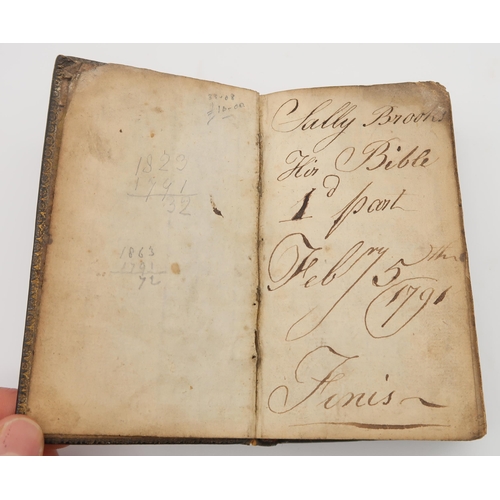 1829
1791
32
1863
1791
72
Sally Brooks
Hir Bible
1d part
Febry 5th
1791
Finis